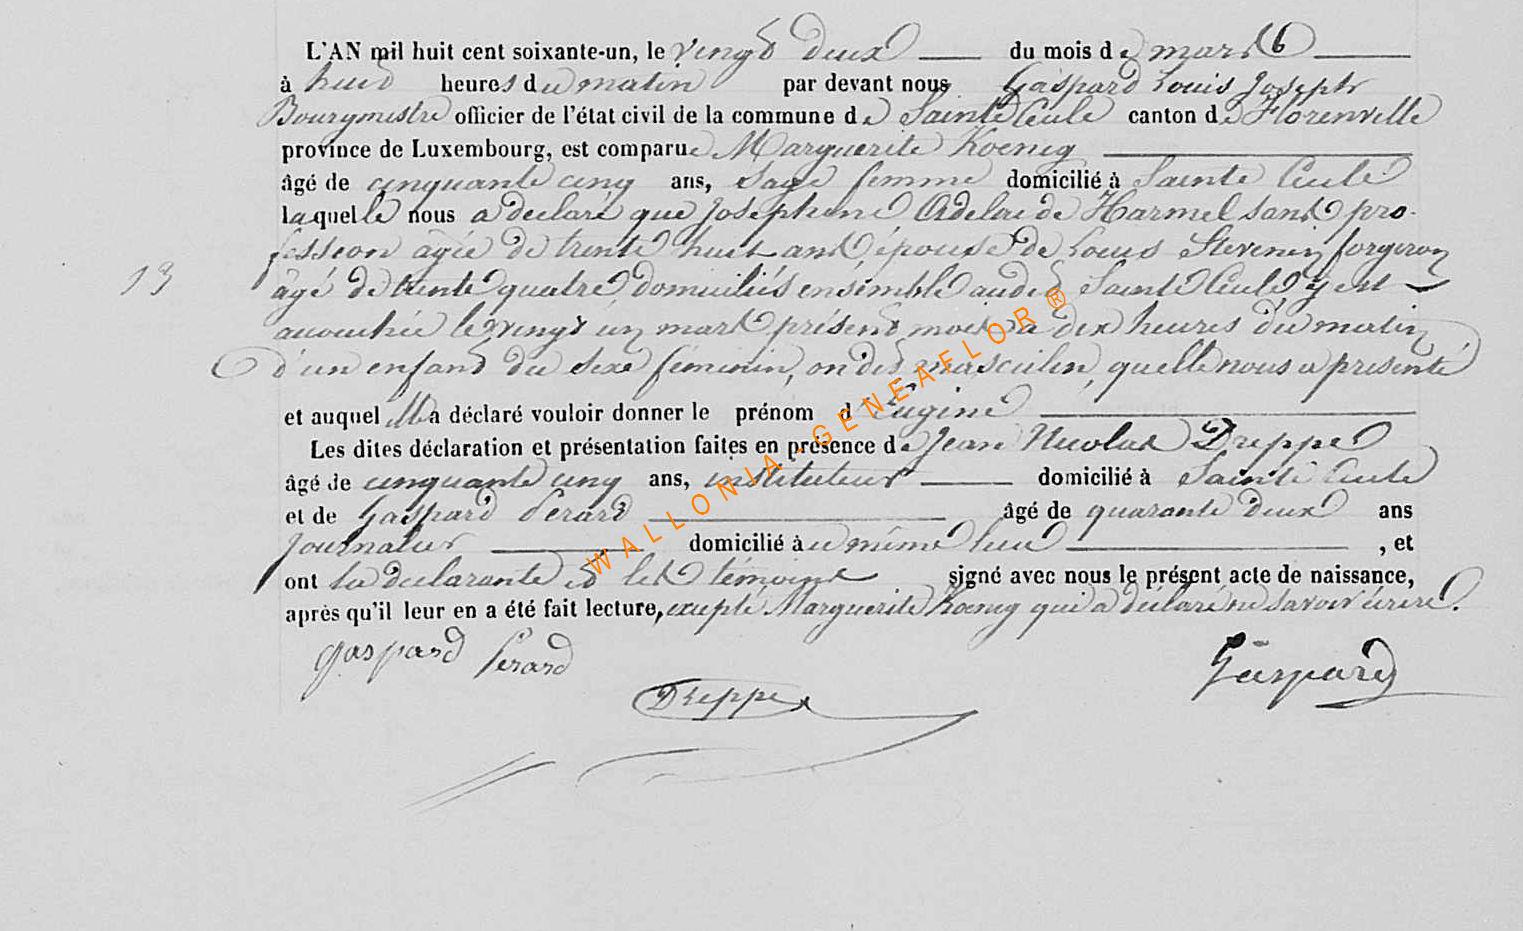 L'AN mil huit cent soixante-un, le vingt deux du mois de mars
à huit heures du matin par devant nous Gaspard Louis Joseph
Bourgmestre officier de l'état civil de la commune de Sainte Cécile canton de Florenville
province de Luxembourg, est comparue Marguerite Koenig
âgé de cinquante cinq ans, Sage femme domicilié à Sainte Cécile
laquelle nous a déclaré que Josephine Adelaide Harmel sans pro-
fession âgée de trente huit ans épouse de Louis Stevenin forgeron
13
âgé de trente quatre domiciliés ensemble audit Sainte Cécile y est
accouchée le vingt un mars présent mois à dix heures du matin
d'un enfant du sexe féminin, on dit masculin, quelle nous a présenté
et auquel elle a déclaré vouloir donner le prénom d'Eugine
Les dites déclaration et présentation faites en présence de Jean Nicolas Dreppe
âgé de cinquante cinq ans, instituteur domicilié à Sainte Cécile
et de Gaspard Perard âgé de quarante deux ans
Journalier domicilié au même lieu, et
ont la déclarante et les témoins signé avec nous le présent acte de naissance,
après qu'il leur en a été fait lecture, excepté Marguerite Koenig qui a déclaré ne savoir écrire.
gaspard Perard
Gaspard
Dreppe
WALLONIA-GENEAFLOR®